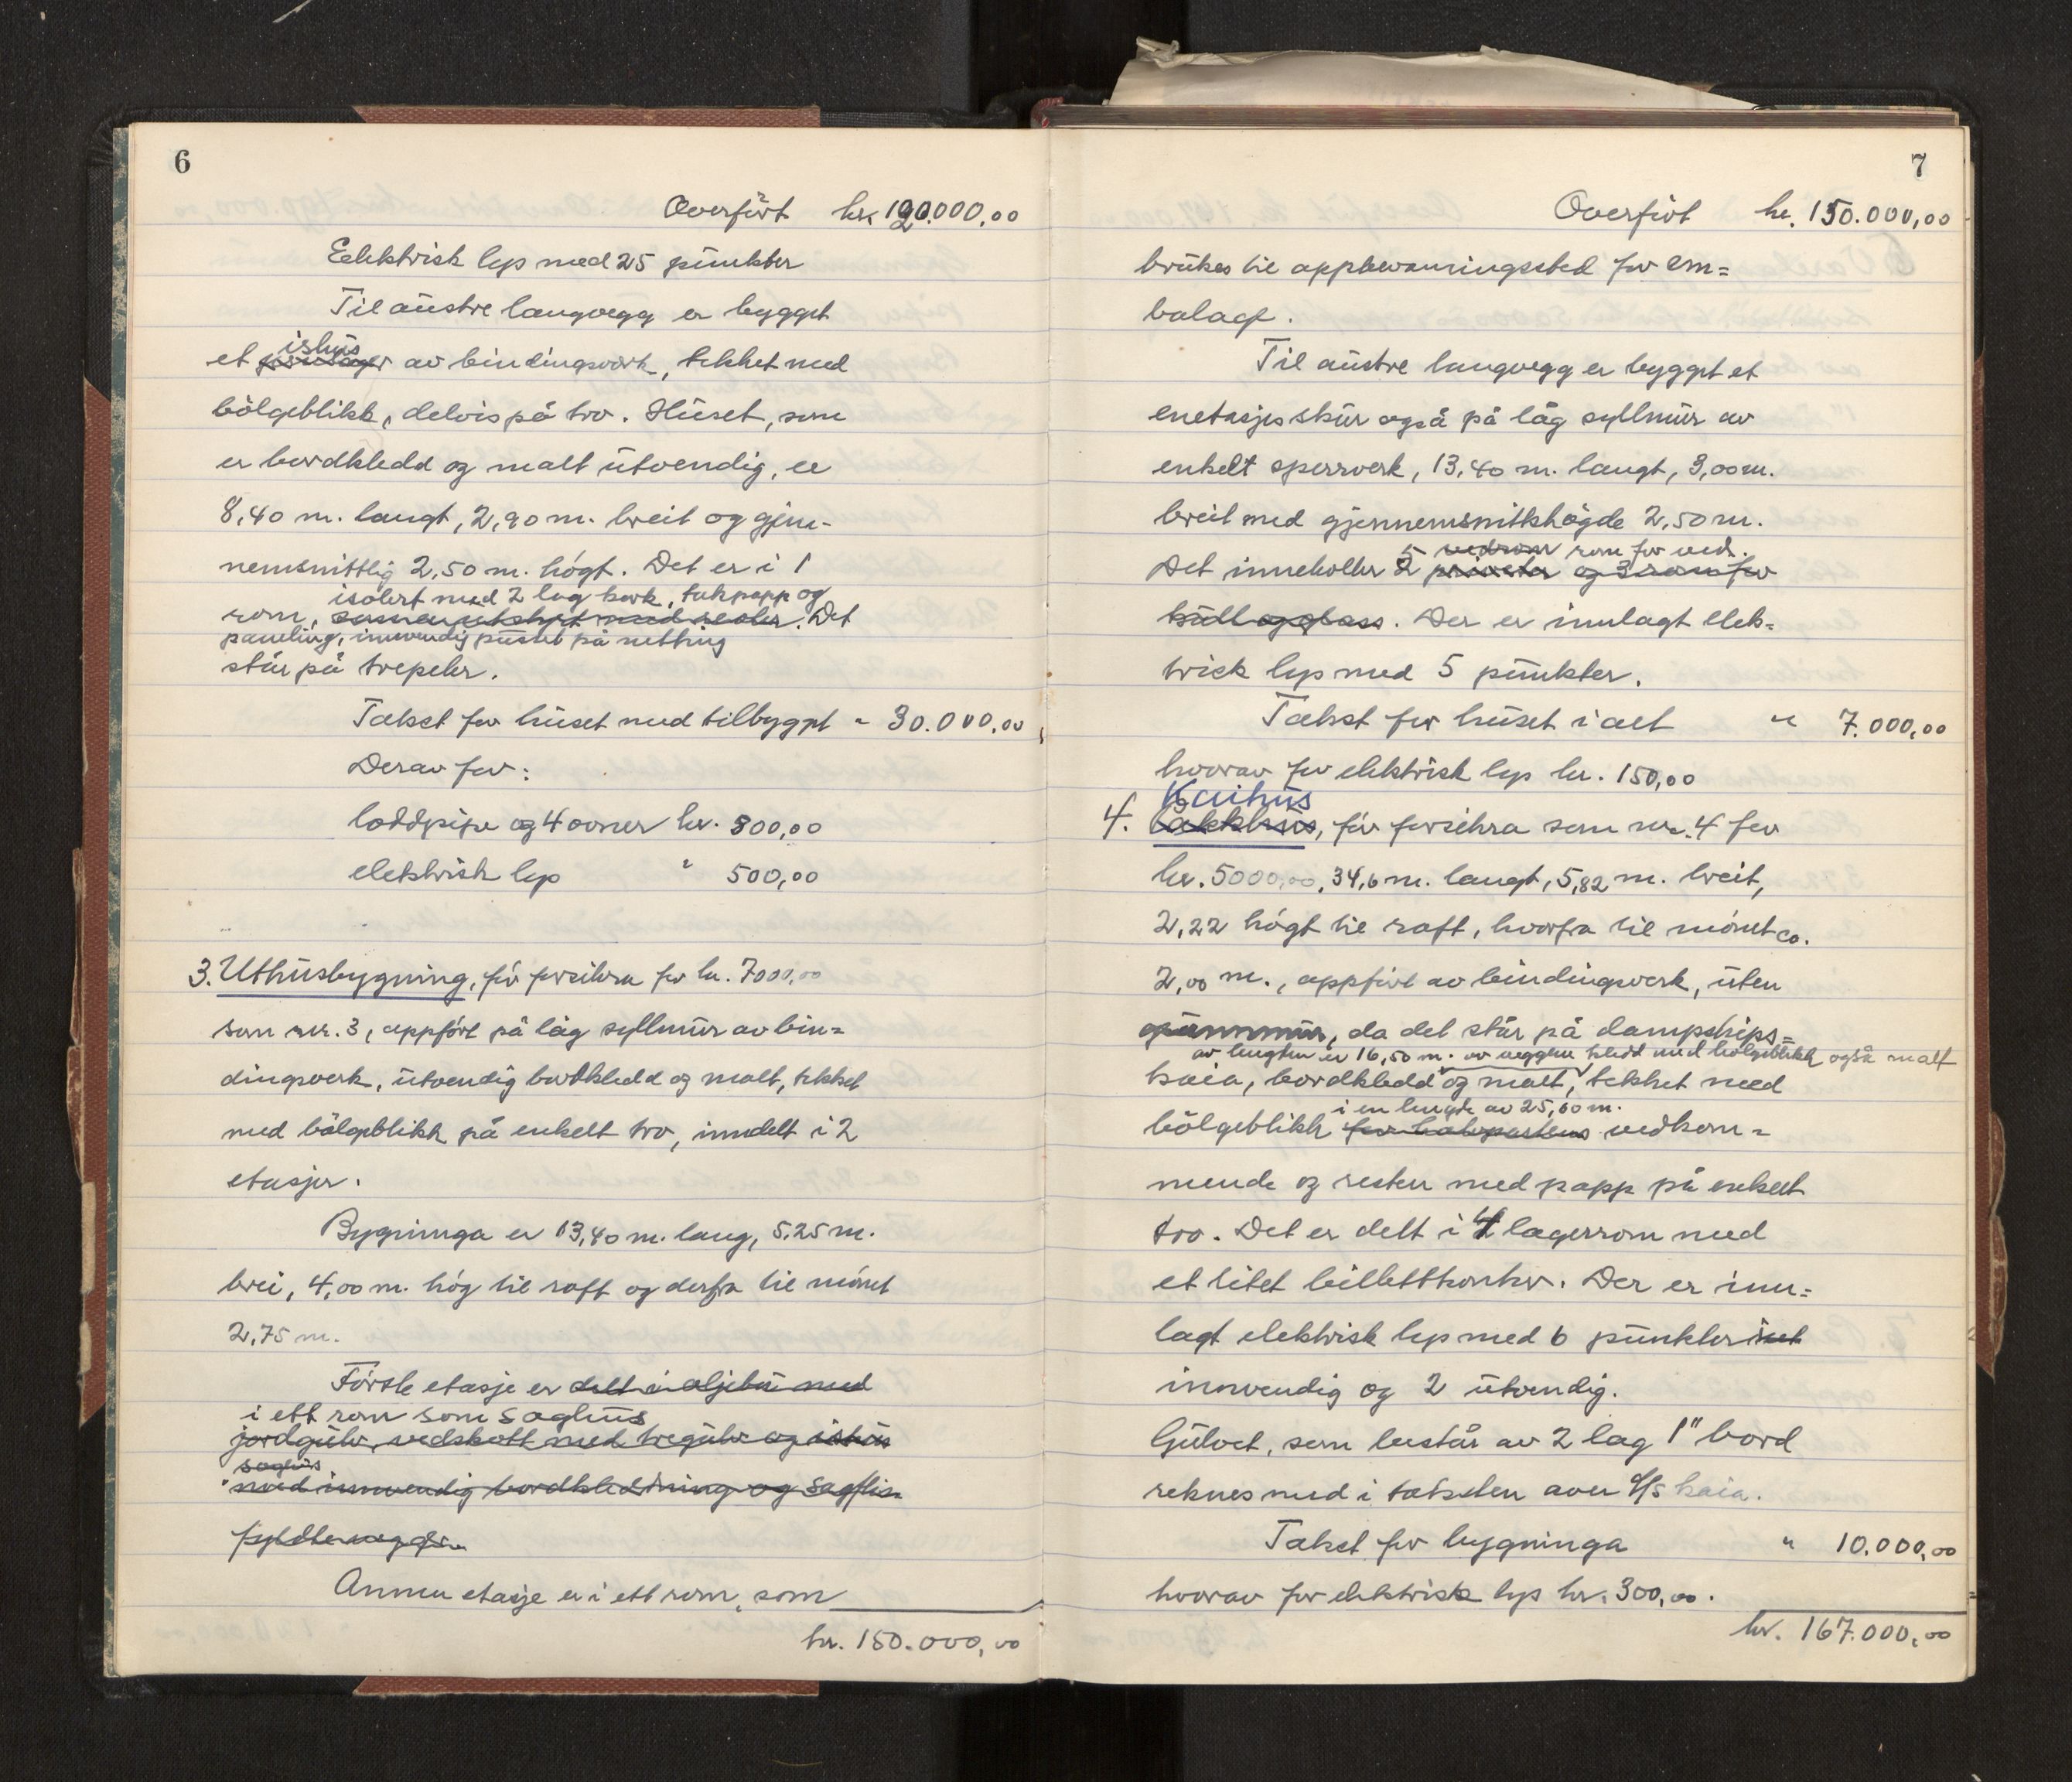 6
Overfört kr. 120.000,00
Eelektrisk lys med 25 punkter
Til austre langvegg er bygget
ishus
et av bindingsverk, tekket med
bölgeblikk, delvis på tro. Huset, som
er bordkledd og malt utvendig, er
8,40 m. langt, 2,90 m. breit og gjen-
nemsnittlig 2,50 m. högt. Det er i 1
isolert med 2 lag kork, takpapp og
rom, . Det
paneling, innvendig pusset på netting
står på trepeler.
Takst for huset med tilbygget " 30.000,00
Derav for:
loddpipe og 4 ovner kr. 800,00
elektrisk lys " 500,00
3. Uthusbygning, för forsikra for kr. 7000,00
som nr. 3, oppfört på låg syllmur av bin=
dingsverk, utvendig bordkledd og malt, tekket
med bölgeblikk på enkelt tro, inndelt i 2
etasjer.
Bygninga er 13,40 m. lang, 5,25 m.
brei, 4,00 m. hög til raft og derfra til mönet
2,75 m.
Förste etasje er delt i oljebu med
i ett rom som saghus
jordgulv, vedskott med tregulv og ishus
saghus
med innvendig bordkledning og sagflis
fyldte vegger.
Annen etasje er i ett rom, som
kr. 150.000,00
7
Overfört kr. 150.000,00
brukes til oppbevaringssted for em=
balage.
Til austre langvegg er bygget et
enetasjes skur også på låg syllmur av
enkelt sperrverk, 13,40 m. langt, 3,00 m.
breit med gjennemsnittshögde 2,50 m.
5 vedrom rom for ved.
Det inneholder 2 priveter og 3 rom for
kull og glass. Der er innlagt elek=
trisk lys med 5 punkter.
Takst for huset i alt " 7.000,00
hvorav for elektrisk lys kr. 150,00
Kaihus
4. Pakkhus, för forsikra som nr. 4 for
kr. 5000,00, 34,6 m. langt, 5,82 m. breit,
2,22 högt til raft, hvorfra til mönet ca.
2,00 m., oppfört av bindingsverk, uten
grunnmur, da det står på dampskips=
av lengden er 16,50 m. av veggen kledd med bölgeblikk også malt
kaia, bordkledd og malt, tekket med
i en lengde av 25,60 m.
bölgeblikk for halvpartens vedkom=
mende og resten med papp på enkelt
tro. Det er delt i 4 lagerrom med
et litet billettkontor. Der er inn=
lagt elektrisk lys med 6 punkter
innvendig og 2 utvendig.
Gulvet, som består av 2 lag 1" bord
reknes med i taksten over d/s kaia.
Takst for bygninga " 10.000,00
hvorav for elektrisk lys kr. 300,00.
kr. 167.000,00